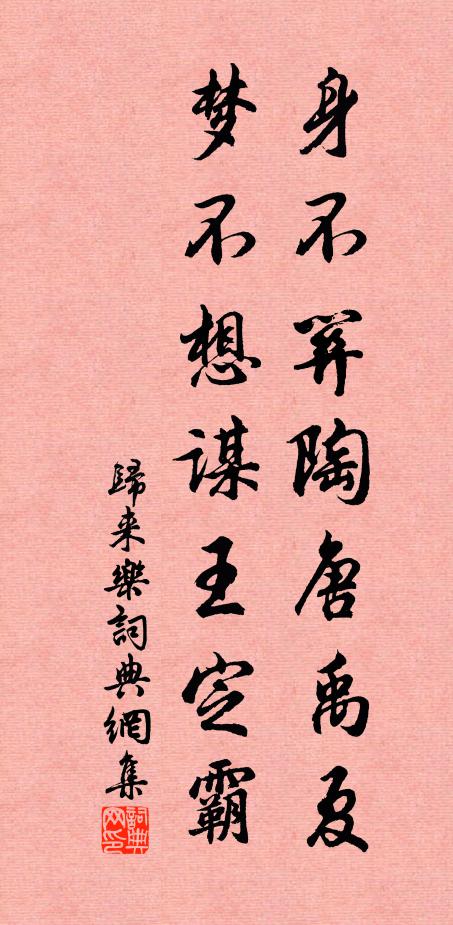 身不陶唐禹夏
梦不想谋王定霸
歸来樂詞典網集
詞典
网印